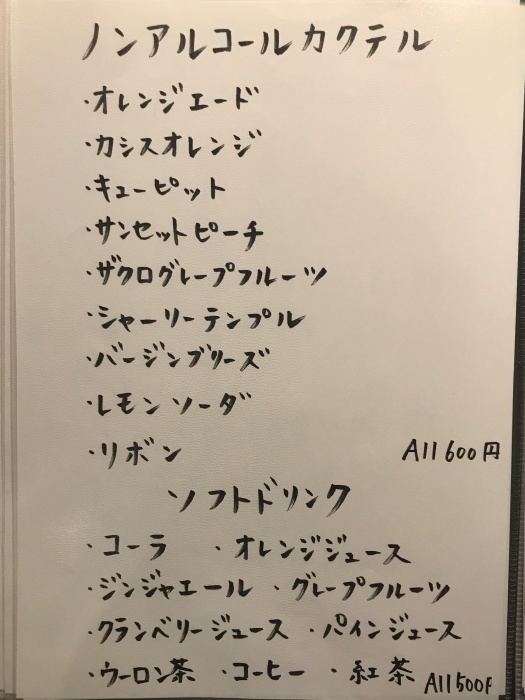 ノンアルコールカクテル
・オレンジエード
・カシスオレンジ
・キューピット
・サンセットピーチ
・ザクログレープフルーツ
・シャーリーテンプル
・バージンブリーズ
・レモンソーダ
・リボン All 600円
ソフトドリンク
・コーラ ・オレンジジュース
・ジンジャエール ・グレープフルーツ
・クランベリージュース ・パインジュース
・ウーロン茶 ・コーヒー ・紅茶 All 500